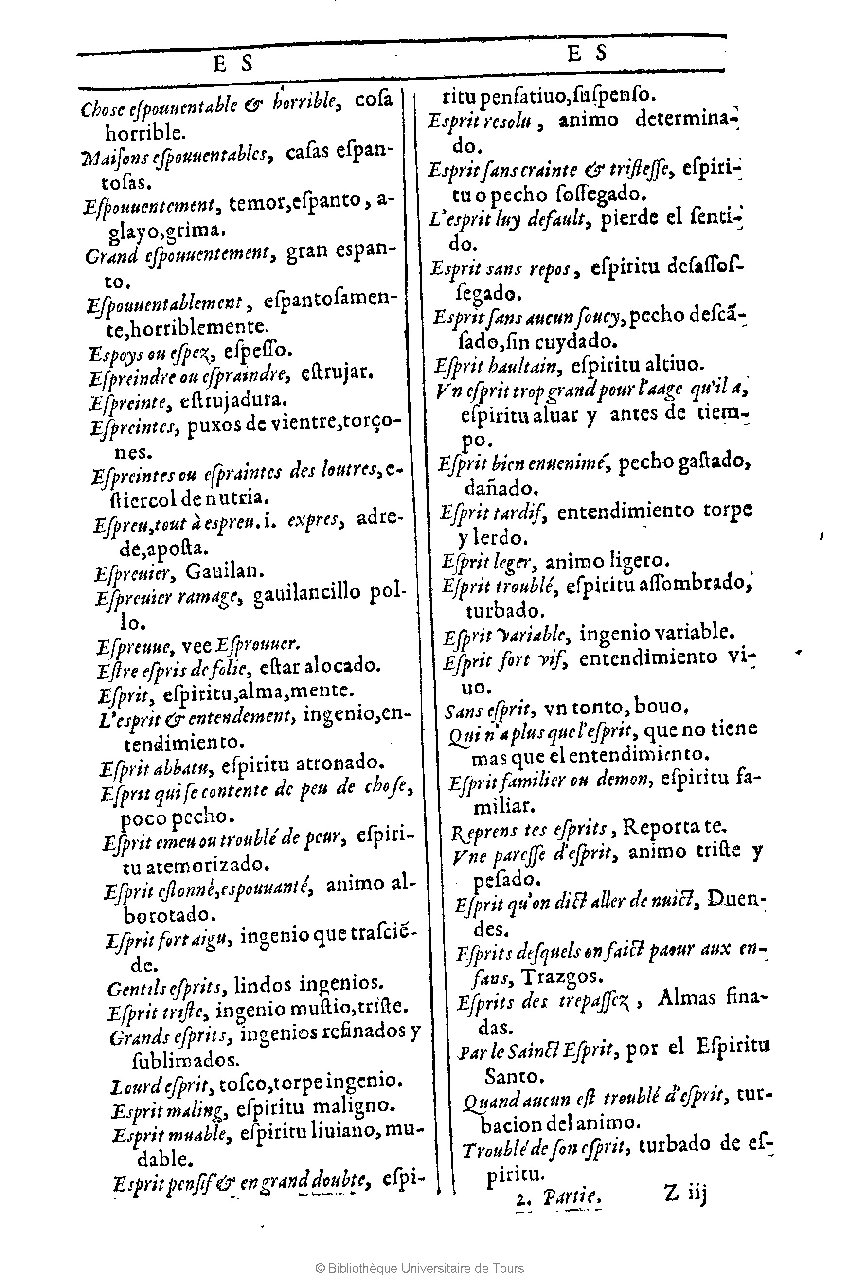 E S
Chose eſpouuentable & horrible, coſa
horrible.
Maiſons eſpouuentables, caſas eſpan-
toſas.
Eſpouuentement, temor,eſpanto, a-
glayo,grima.
Grand eſpouuentement, gran espan-
to.
Eſpouuentablement, eſpantoſamen-
te,horriblemente.
Espoys ou eſpez, eſpeſſo.
Eſpreindre ou eſpraindre, eſtrujar.
Eſpreinte, eſtrujadura.
Eſpreintes, puxos de vientre,torço-
nes.
Eſpreintes ou eſpraintes des loutres, e-
ſtiercol de nutria.
Eſpreu,tout à espreu.i. expres, adre-
de,apoſta.
Eſpreuier, Gauilan.
Eſpreuier ramage, gauilancillo pol-
lo.
Eſpreuue, vee Eſprouuer.
Eſtre eſpris de folie, eſtar alocado.
Eſprit, eſpiritu,alma,mente.
L'esprit & entendement, ingenio,en-
tendimiento.
Eſprit abbatu, eſpiritu atronado.
Eſprit qui ſe contente de peu de choſe,
poco pecho.
Eſprit emeu ou troublé de peur, eſpiri-
tu atemorizado.
Eſprit eſtonné,espouuanté, animo al-
borotado.
Eſprit fort aigu, ingenio que traſciẽ-
de.
Gentils eſprits, lindos ingenios.
Eſprit triſte, ingenio muſtio,triſte.
Grands eſprits, ingenios refinados y
ſublimados.
Lourd eſprit, toſco,torpe ingenio.
Esprit maling, eſpiritu maligno.
Esprit muable, eſpiritu liuiano, mu-
dable.
Esprit penſif & en grand doubte, eſpi-
E S
ritu penſatiuo,ſuſpenſo.
Esprit resolu, animo determina-
do.
Esprit ſans crainte & triſteſſe, eſpiri-
tu o pecho ſoſſegado.
L'esprit luy default, pierde el ſenti-
do.
Esprit sans repos, eſpiritu deſaſſoſ-
ſegado.
Esprit ſans aucun ſoucy, pecho deſcã-
ſado,ſin cuydado.
Eſprit haultain, eſpiritu altiuo.
Vn eſprit trop grand pour l'aage qu'il a,
eſpiritu aluar y antes de tiem-
po.
Eſprit bien enuenimé, pecho gaſtado,
dañado.
Eſprit tardif, entendimiento torpe
y lerdo.
Eſprit leger, animo ligero.
Eſprit troublé, eſpiritu aſſombrado,
turbado.
Eſprit variable, ingenio variable.
Eſprit fort vif, entendimiento vi-
uo.
Sans eſprit, vn tonto, bouo.
Qui n'a plus que l'eſprit, que no tiene
mas que el entendimiento.
Eſprit familier ou demon, eſpiritu fa-
miliar.
Reprens tes eſprits, Reporta te.
Vne pareſſe d'eſprit, animo triſte y
peſado.
Eſprit qu'on dict aller de nuict, Duen-
des.
Eſprits deſquels on faict paour aux en-
fans, Trazgos.
Eſprits des trepaſſez, Almas fina-
das.
Par le Sainct Eſprit, por el Eſpiritu
Santo.
Quand aucun eſt troublé d'eſprit, tur-
bacion del animo.
Troublé de ſon eſprit, turbado de eſ-
piritu.
2. Partie. Z iij
© Bibliothèque Universitaire de Tours